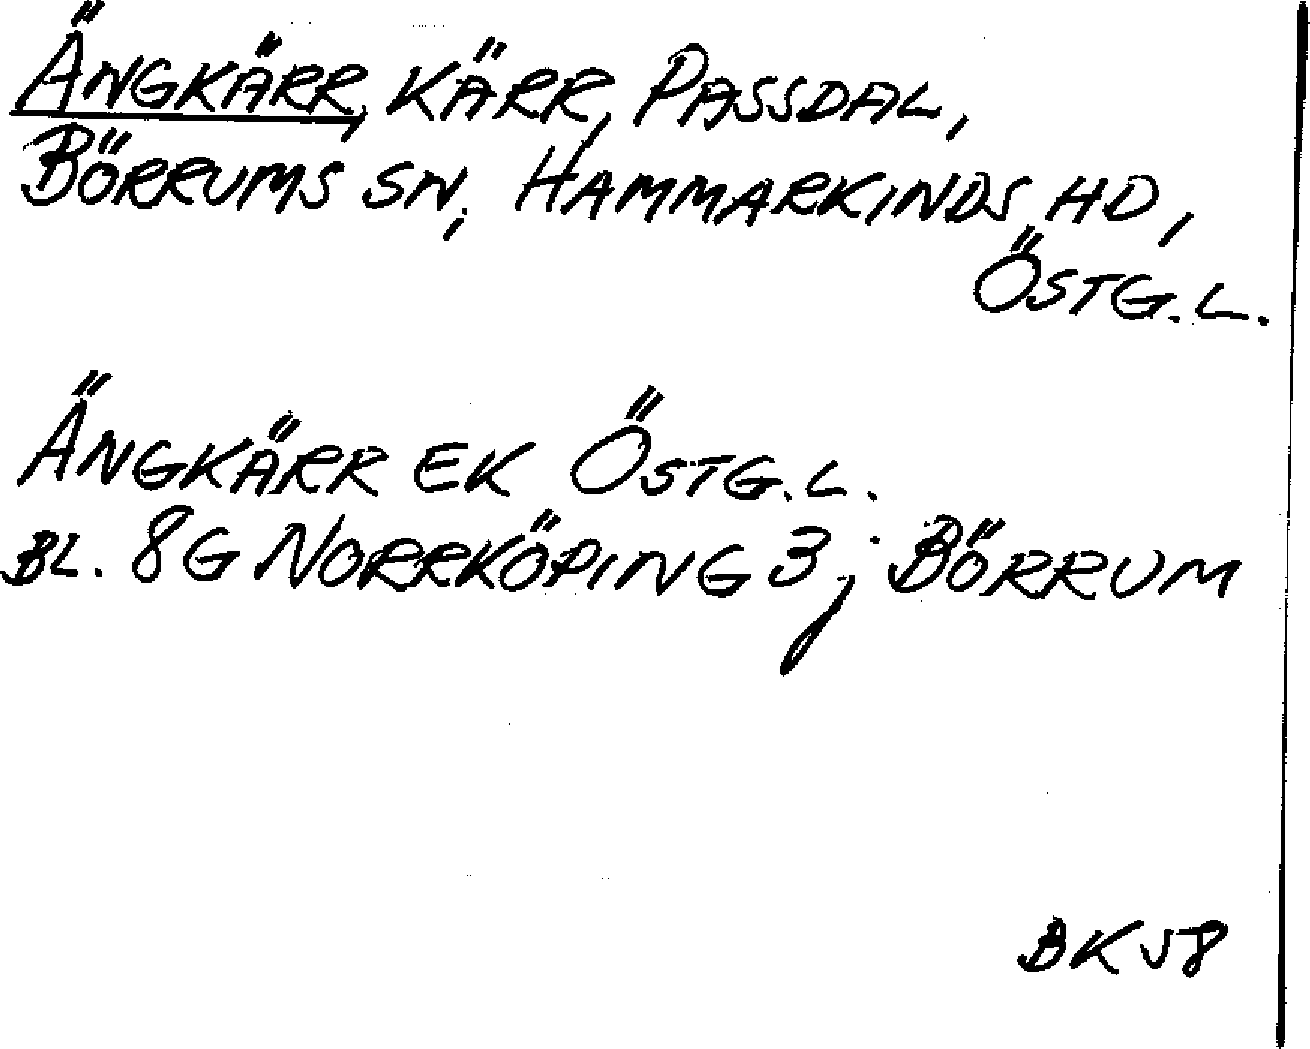 ÄNGKÄRR, KÄRR, PASSDAL,
BÖRRUMS SN, HAMMARKINDS HD,
ÖSTG.L.
ÄNGKÄRR EK ÖSTG.L.
BL. 8G NORRKÖPING 3j BÖRRUM
BK 58